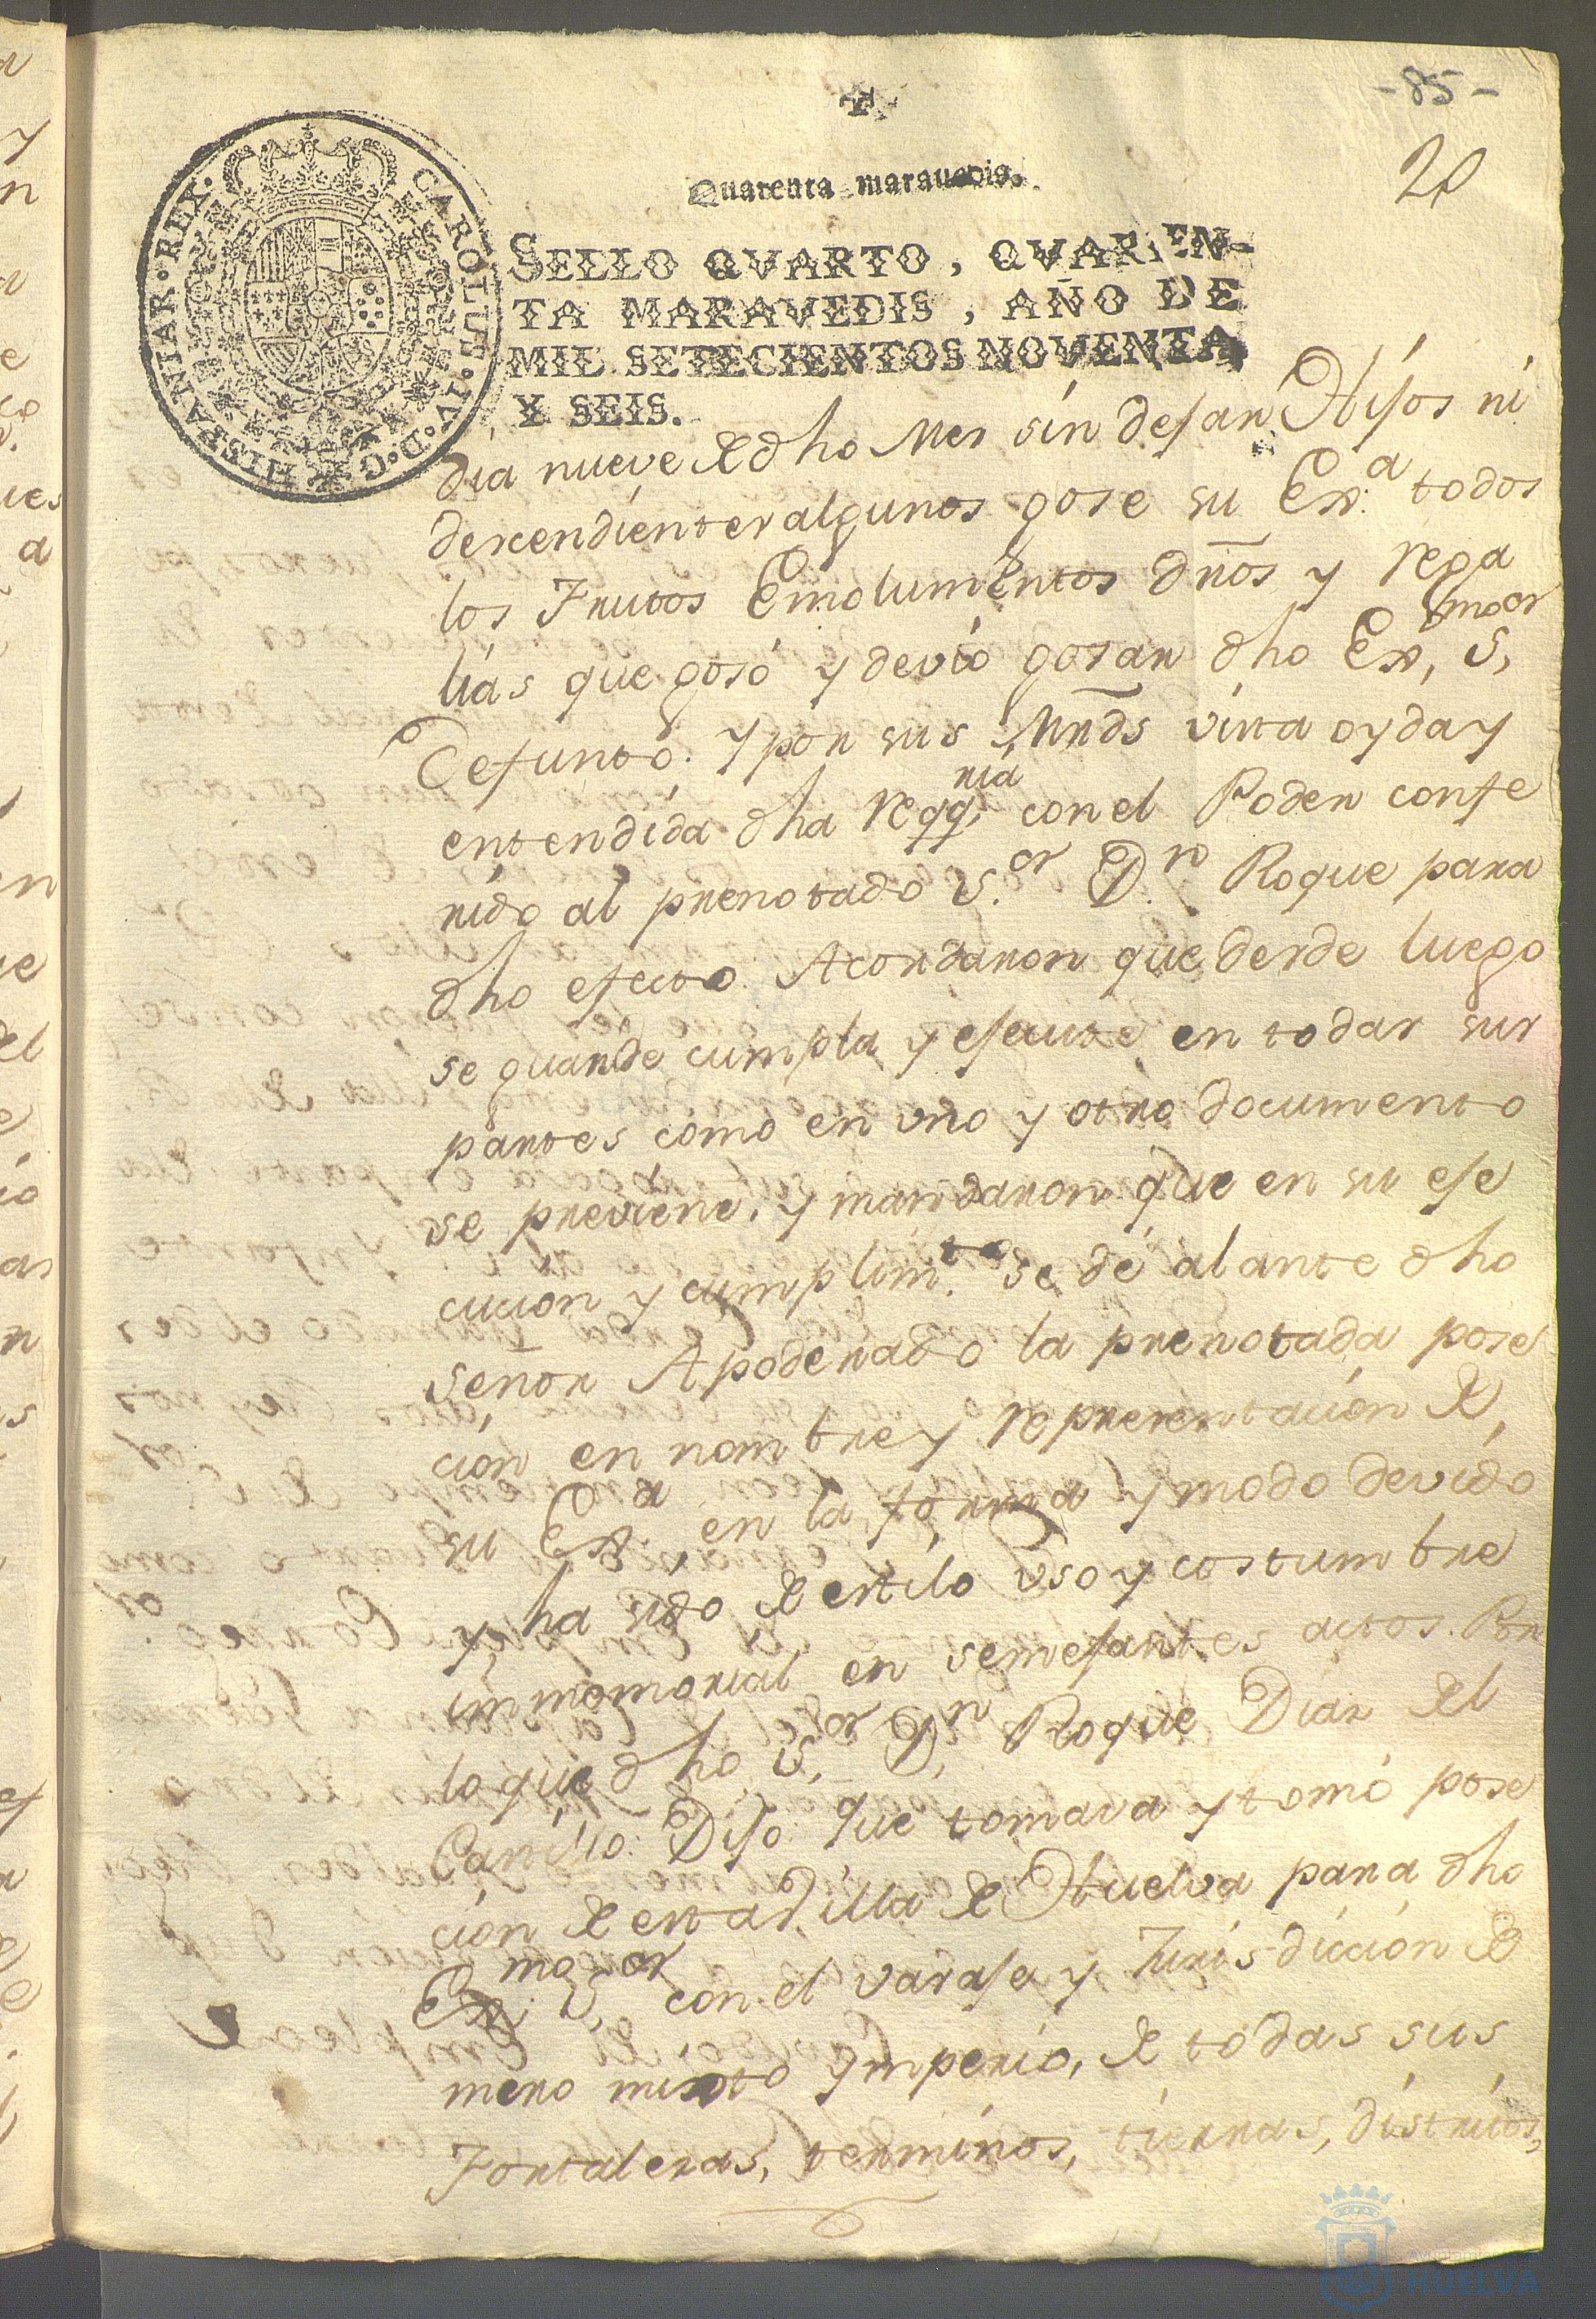 -85-
20
Quarenta maravedis.
SELLO QVARTO, QVAREN-
TA MARAVEDIS, AÑO DE
MIL SETECIENTOS NOVENTA
Y SEIS.
CAROLUS·IV·D·G·HISPANIAR·REX·
dia nueve de dho Mes sin dejar Hijos ni
descendientes algunos gose su Exª todos
los Frutos Emolumentos dr̃os y rega
lias que gosó y devio gosar dho Exmo Sor
Defunto. y por sus Mrds vista oyda y
entendida dha reqqria con el Poder confe
rido al prenotado Sor Dn Roque para
dho efecto. Acordaron que desde luego
se guarde cumpla y ejecute en todas sus
partes como en uno y otro documento
se previene, y mandaron que en su eje
cucion y cumplimto se dé al ante dho
señor Apoderado la prenotada pose
cion en nombre y representacion de
su Exª en la forma y modo devido
y ha sido de estilo uso y costumbre
immomorial en semejantes actos. Por
lo que dho Sor Dn Roque Diaz del
Carillo: Dijo: que tomava y tomó pose
cion de esta Villa de Huelva para dho
Exmo Sor con el varasa y Jurisdiccion de
mero misto ymperio, de todas sus
Fortalezas, terminos, tierras, distritos,
HUELVA